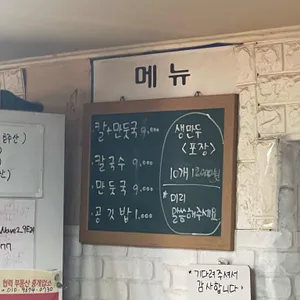 메 뉴
칼+만둣국 9,000
칼국수 9,000
만둣국 9,000
공깃밥 1,000
생만두
<포장>
10개 12,000원
* 미리
말씀해주세요
* 기다려주셔서
감사합니다
협력 부동산 중개업소